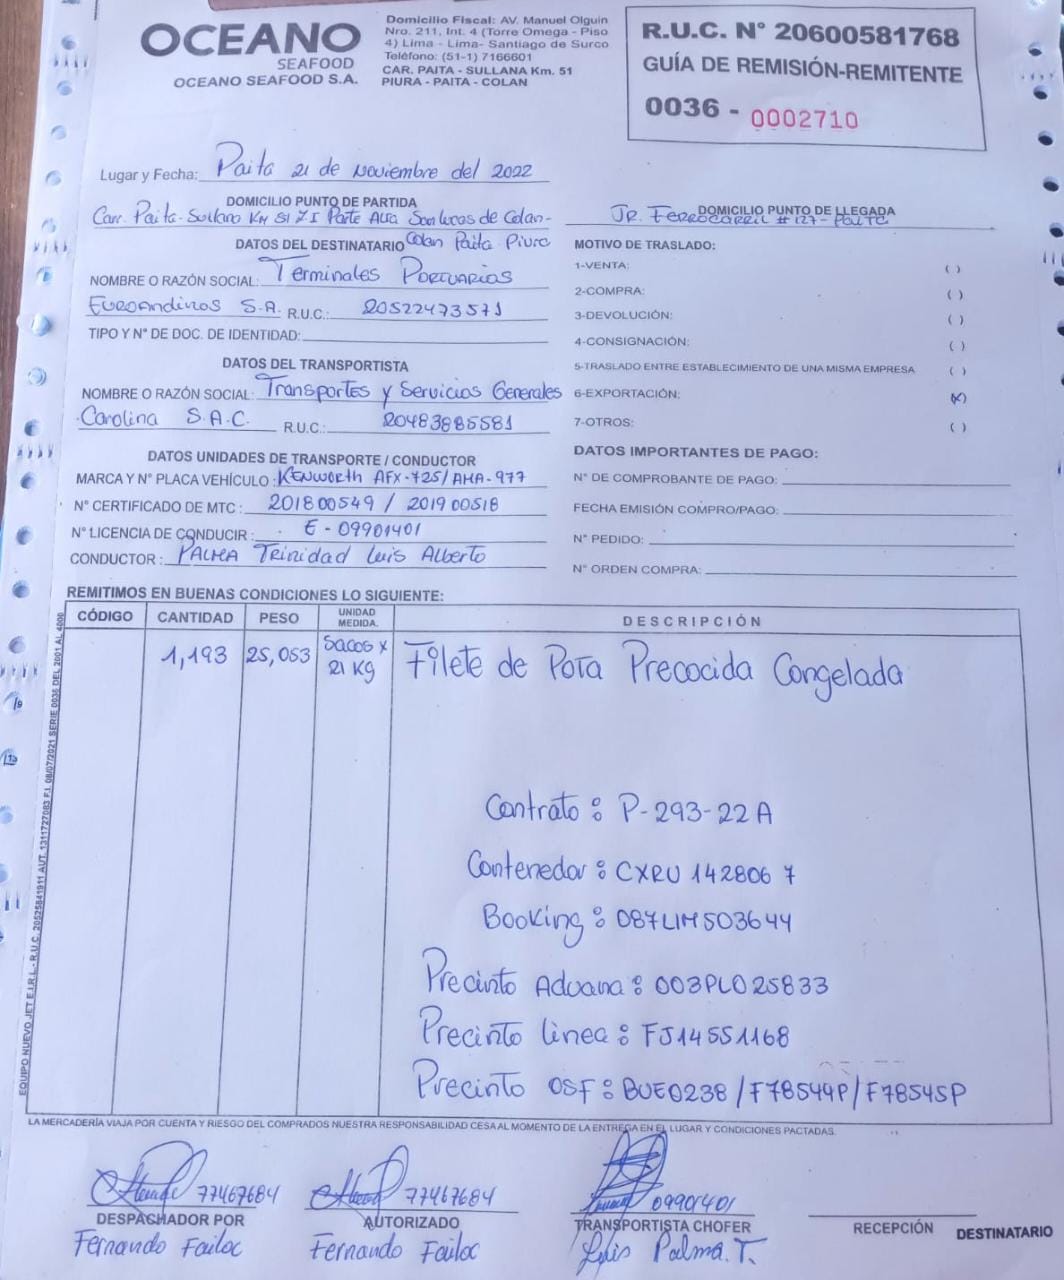 OCEANO
SEAFOOD
OCEANO SEAFOOD S.A.
Domicilio Fiscal: AV. Manuel Olguin
Nro. 211, Int. 4 (Torre Omega - Piso
4) Lima - Lima- Santiago de Surco
Teléfono: (51-1) 7166601
CAR. PAITA - SULLANA Km. 51
PIURA - PAITA - COLAN
R.U.C. N° 20600581768
GUÍA DE REMISIÓN-REMITENTE
0036 - 0002710
Lugar y Fecha: Paita 21 de Noviembre del 2022
DOMICILIO PUNTO DE PARTIDA
Carr. Paita-Sullana KM 51 Z I Parte Alta San Lucas de Colan-
Colan Paita Piura
DOMICILIO PUNTO DE LLEGADA
JR. Ferrocarril #127- Paita
DATOS DEL DESTINATARIO
NOMBRE O RAZÓN SOCIAL: Terminales Portuarios
Euroandinos S.A. R.U.C.: 20522473571
TIPO Y N° DE DOC. DE IDENTIDAD:
DATOS DEL TRANSPORTISTA
NOMBRE O RAZÓN SOCIAL: Transportes y Servicios Generales
Carolina S.A.C. R.U.C.: 20483885581
DATOS UNIDADES DE TRANSPORTE / CONDUCTOR
MARCA Y N° PLACA VEHÍCULO : KENWORTH AFX-725/AHA-977
N° CERTIFICADO DE MTC : 201800549 / 201900518
N° LICENCIA DE CONDUCIR : E - 09901401
CONDUCTOR : PALMA Trinidad Luis Alberto
MOTIVO DE TRASLADO:
1-VENTA: ( )
2-COMPRA: ( )
3-DEVOLUCIÓN: ( )
4-CONSIGNACIÓN: ( )
5-TRASLADO ENTRE ESTABLECIMIENTO DE UNA MISMA EMPRESA ( )
6-EXPORTACIÓN: (X)
7-OTROS: ( )
DATOS IMPORTANTES DE PAGO:
N° DE COMPROBANTE DE PAGO:
FECHA EMISIÓN COMPRO/PAGO:
N° PEDIDO:
N° ORDEN COMPRA:
REMITIMOS EN BUENAS CONDICIONES LO SIGUIENTE:
CÓDIGO CANTIDAD PESO UNIDAD MEDIDA. DESCRIPCIÓN
1,193 25,053 Sacos x 21 Kg Filete de Pota Precocida Congelada
Contrato : P-293-22A
Contenedor : CXRU 142806 7
Booking : 087LIM503644
Precinto Aduana : 003PLO25833
Precinto linea : FJ14551168
Precinto OSF : BUE0238 / F78544P / F78545P
EQUIPO NUEVO JET E.I.R.L. - R.U.C. 20525841911 AUT. 1311727083 F.I. 08/07/2021 SERIE 0036 DEL 2001 AL 4000
LA MERCADERÍA VIAJA POR CUENTA Y RIESGO DEL COMPRADOS NUESTRA RESPONSABILIDAD CESA AL MOMENTO DE LA ENTREGA EN EL LUGAR Y CONDICIONES PACTADAS.
77467684
DESPACHADOR POR
Fernando Failoc
77467684
AUTORIZADO
Fernando Failoc
09901401
TRANSPORTISTA CHOFER
Luis Palma.T.
RECEPCIÓN DESTINATARIO